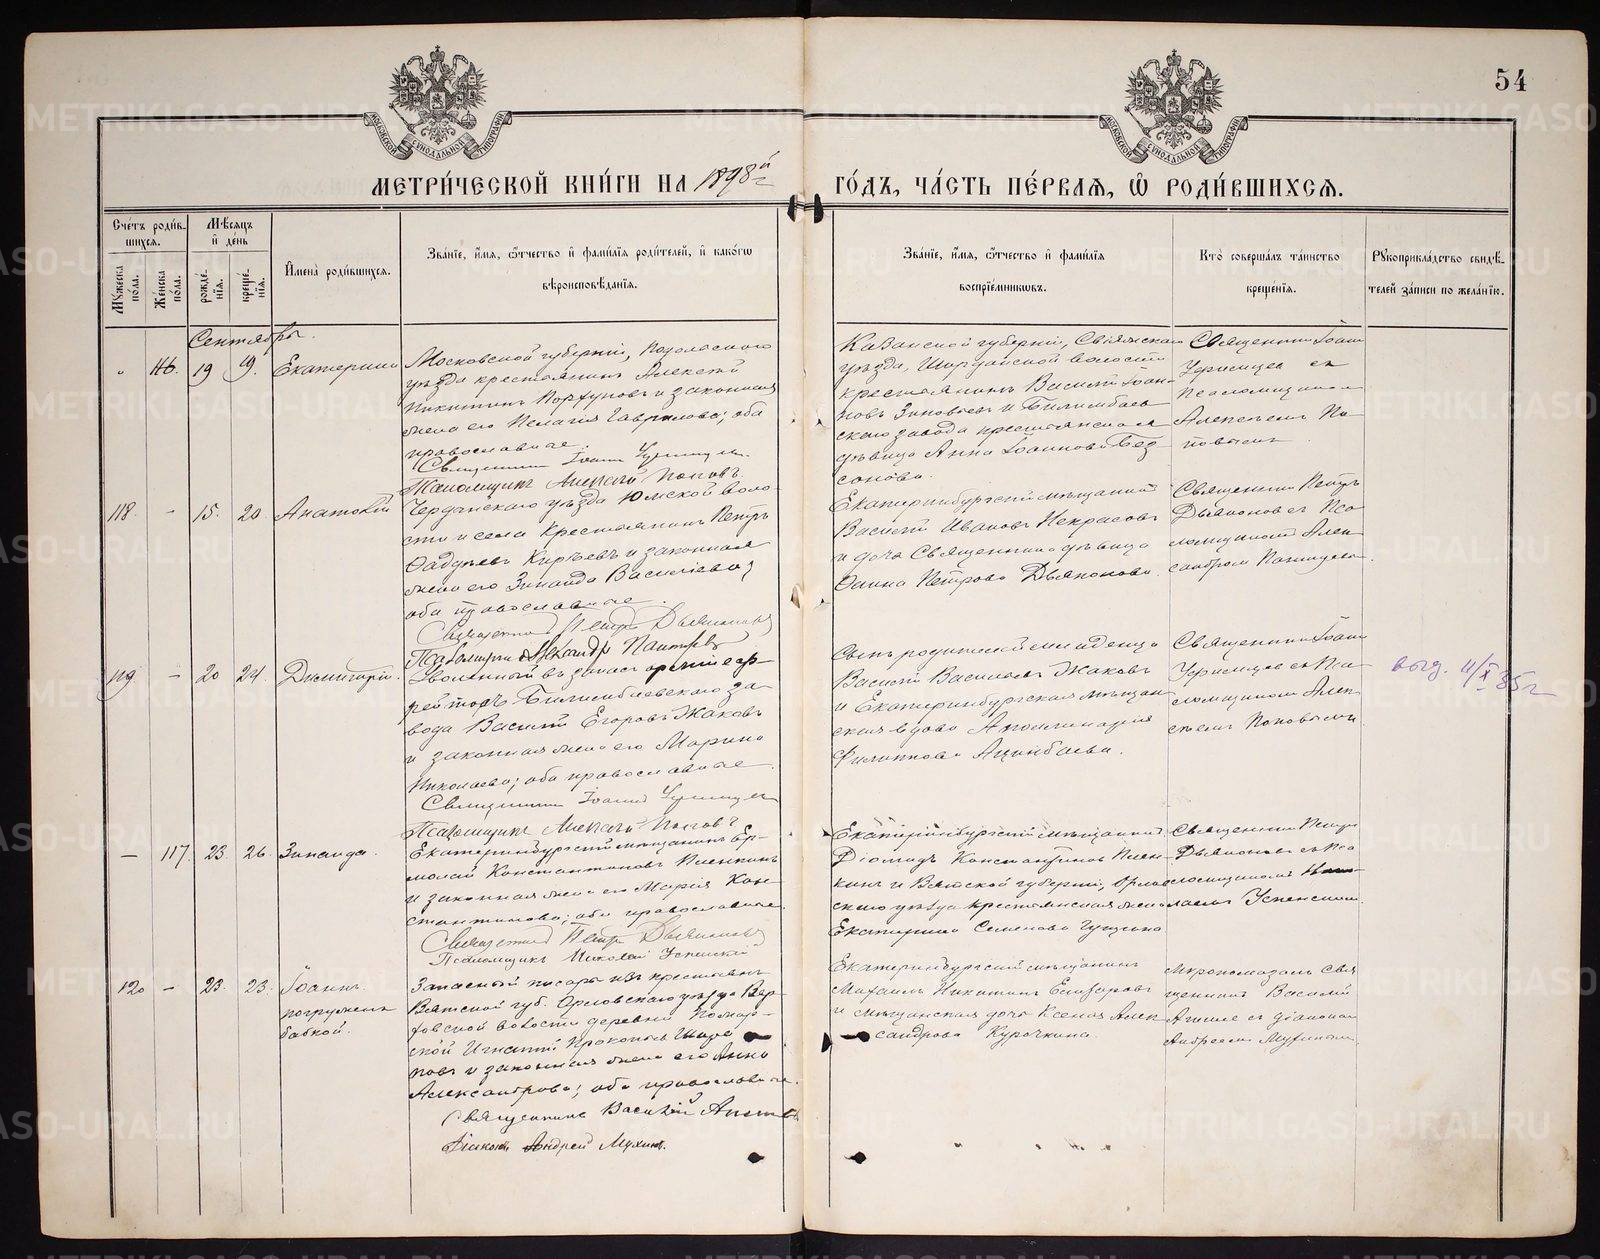 54
МЕТРИ́ЧЕСКОЙ КНИ́ГИ НА 1898й ГО́ДЪ, ЧА́СТЬ ПЕ́РВАѦ, Ѽ РОДИ́ВШИХСѦ.
Сче́тъ роди́в-
шихсѧ.
Мꙋжеска по́ла.
Же́нска по́ла.
Мѣсѧцъ и҆ де́нь
рожде́-нїѧ.
креще́-нїѧ.
И҆мена̀ роди́вшихсѧ.
Зва́нїе, и҆́мѧ, ѻ҆́тчество и҆ фами́лїѧ роди́телей, и҆ како́гѡ
вѣроисповѣ́данїѧ.
Зва́нїе, и҆́мѧ, ѻ҆́тчество и҆ фами́лїѧ
воспрїе́мникѡвъ.
Кто̀ соверша́лъ та́инство
креще́нїѧ.
Рꙋкоприкла́дство свидѣ́-
телей за́писи по жела́нїю.
Сентябрь.
116. 19 19. Екатерина
Московской губернии, Подольского
уѣзда крестьянинъ Алексѣй
Никитинъ и законная
жена его Пелагія Гаврилова; оба
православные.
Священникъ Іоаннъ
Псаломщикъ Алексѣй Поповъ
Казанской губерніи, Свіяжска
уѣзда, волости
крестьянинъ Василій Іоан-
новъ Зиновьевъ и Билимбаев-
скаго завода крестьянская
дѣвица Анна Іоаннова Без
сонова.
Священникъ Іоаннъ
съ
Псаломщикомъ
Алексѣемъ По-
повымъ
118. - 15. 20. Анатолій
Чердынскаго уѣзда Юмской воло-
сти и села Крестьянинъ Петръ
Фадѣевъ Кирѣевъ и законная
жена его Зинаида Василіева;
оба православные.
Священникъ Петръ Дьяконовъ
Псаломщикъ Александръ
Екатеринбургскій мѣщанинъ
Василій Ивановъ Некрасовъ
и дочь Священника дѣвица
Фаина Петрова Дьяконова.
Священникъ Петръ
Дьяконовъ съ Пса
ломщикомъ Алек
сандромъ
119 - 20 24. Димитрій.
Уволенный въ запасъ арміи еф-
рейторъ Билимбаевскаго за-
вода Василій Егоровъ Жаковъ
и законная жена его Марина
Николаева; оба православные.
Священникъ Іоаннъ
Псаломщикъ Алексѣй Поповъ
Сынъ родителей младенца
Василій Васильевъ Жаковъ
и Екатеринбургская мѣщан
ская вдова Аполлинарія
Филиппова
Священникъ Іоаннъ
съ Пса-
ломщикомъ Алек-
сѣемъ Поповымъ
выд. 11/X 35 г
- 117. 23. 26. Зинаида.
Екатеринбургскій мѣщанинъ Ер-
молай Константиновъ Пленкинъ
и законная жена его Марія Кон-
стантинова; оба православные.
Священникъ Петръ Дьяконовъ
Псаломщикъ Николай Успенскій
Екатеринбургскій мѣщанинъ
Діомидъ Константиновъ Плен-
кинъ и Вятской губерніи, Орлов
скаго уѣзда крестьянская жена
Екатерина Семенова
Священникъ Петръ
Дьяконовъ съ Пса
ломщикомъ Нико-
лаемъ Успенскимъ
120 - 23. 23. Іоаннъ.
погруженъ
бабкой.
Запасный писарь изъ крестьянъ
Вятской губ. Орловскаго уѣзда Вер-
ховской волости деревни
Игнатій Прокопьевъ
и законная жена его Анна
Александрова; оба православные.
Священникъ Василій
Діаконъ Андрей Мухинъ.
Екатеринбургскій мѣщанинъ
Михаилъ Никитинъ Елизаровъ
и мѣщанская дочь Ксенія Алек
сандрова Курочкина.
Мѵропомазалъ Свя
щенникъ Василій
съ діакономъ
Андреемъ Мухинымъ.
METRIKI.GASO-URAL.RU